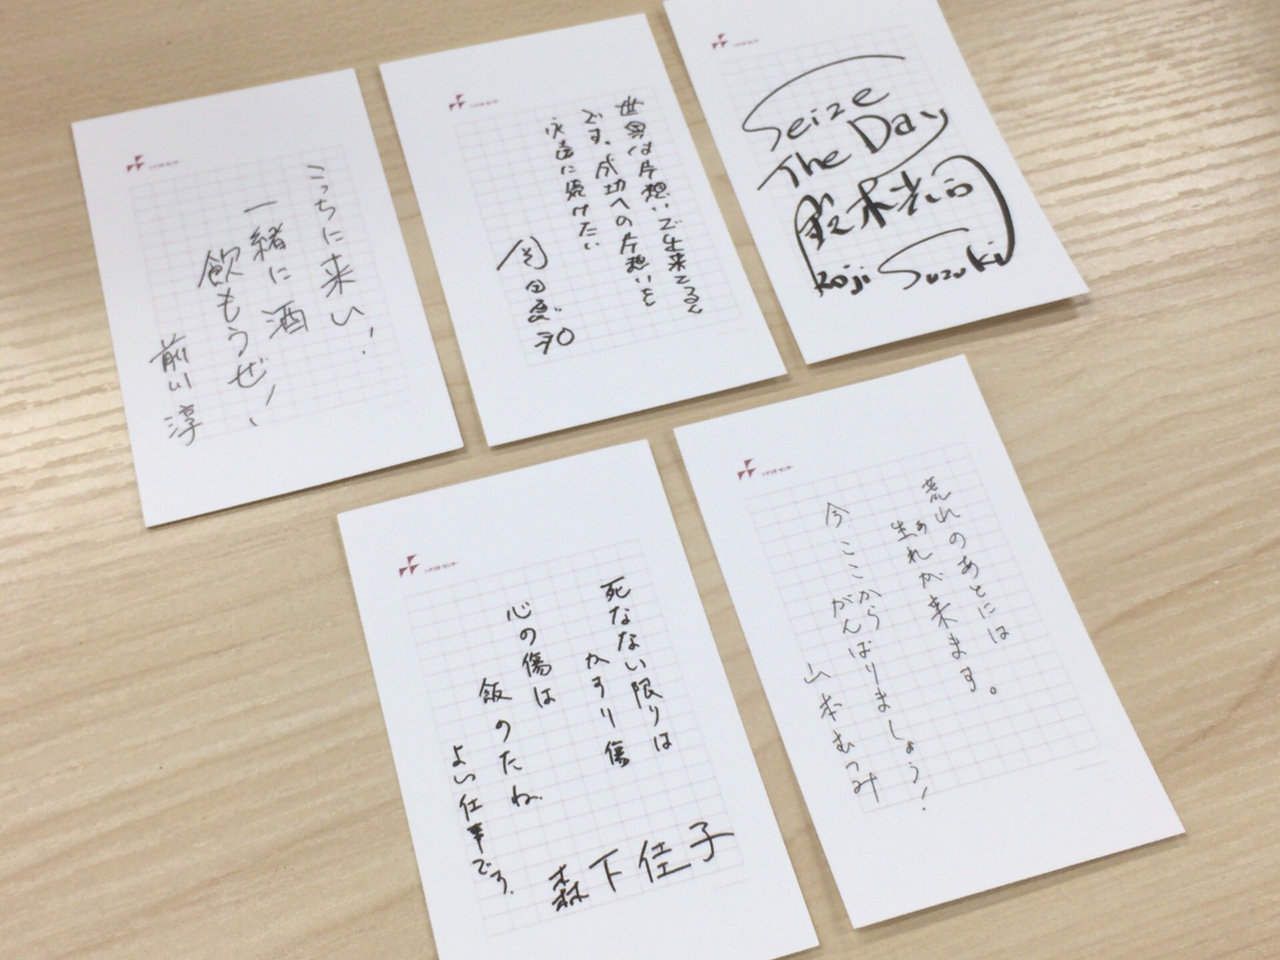 こっちに来い!
一緒に酒
飲もうぜ!
前川 淳
世界は片想いで出来てる
です。成功への片想いを
永遠に続けたい
岡田惠和
Seize
The Day
鈴木光司
Koji Suzuki
シナリオ・センター
死なない限りは
かすり傷
心の傷は
飯のたね
よい仕事でう。
森下佳子
シナリオ・センター
荒れのあとには
生あれが来ます。
今ここから
がんばりましょう!
山本むつみ